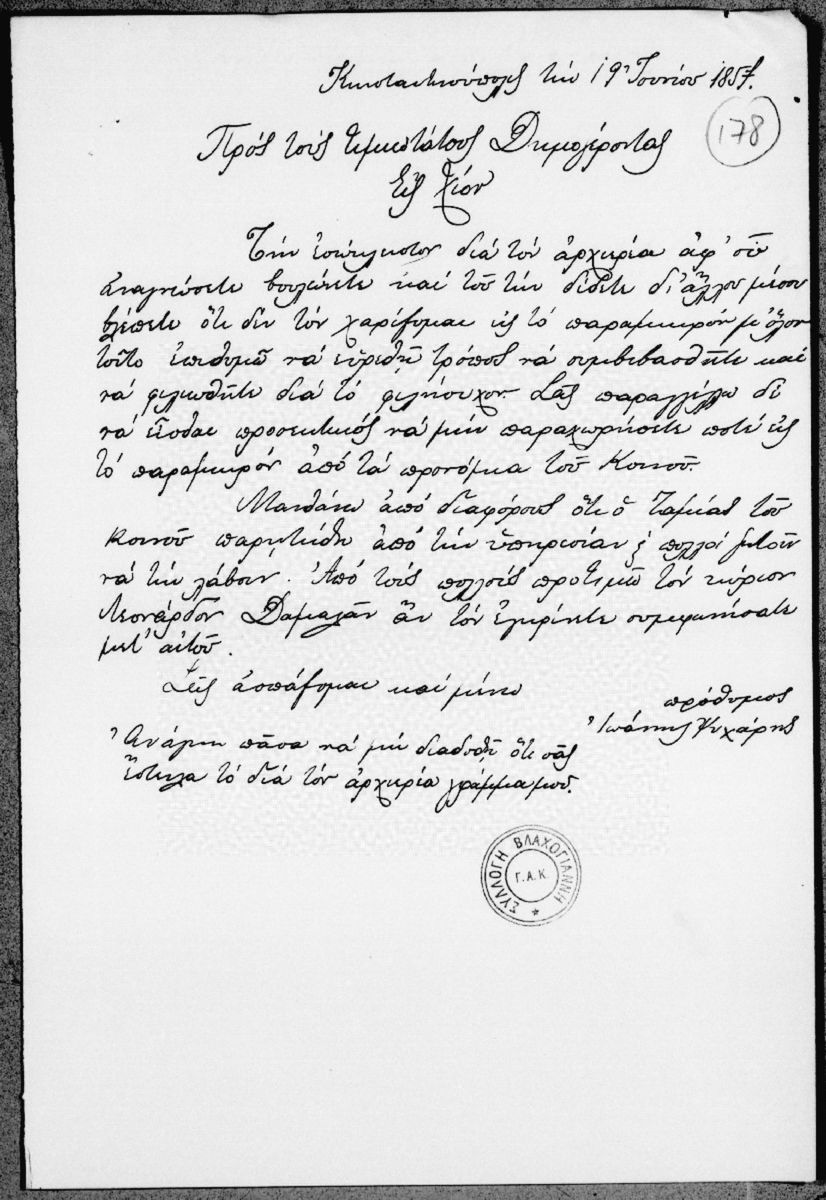 Κωνσταντινούπολις τήν 19 Ἰουνίου 1857.
178
Πρός τούς τιμιωτάτους Δημογέροντας
Εἰς Χίον
Τήν ἐσώκλειστον διά τόν ἀρχιερέα ἀφ' οὗ
ἀναγνώσετε βουλώνετε καί τοῦ τήν δίδετε δι' ἄλλου μέσου
βλέπετε ὅτι δέν τόν χαρίζομαι εἰς τό παραμικρόν μ' ὅλον
τοῦτο ἐπιθυμῶ νά εὑρεθῇ τρόπος νά συμβιβασθῆτε καί
νά φιλιωθῆτε διά τό φιλήσυχον. Σᾶς παραγγέλλω δέ
νά εἶσθαι προσεκτικοί νά μήν παραχωρήσετε ποτέ εἰς
τό παραμικρόν ἀπό τά προνόμια τοῦ Κοινοῦ.
Μανθάνω ἀπό διαφόρους ὅτι ὁ Ταμίας τοῦ
Κοινοῦ παρητήθη ἀπό τήν ὑπηρεσίαν καί πολλοί ζητοῦν
νά τήν λάβουν. Ἀπό τούς πολλούς προτιμῶ τόν κύριον
Λεονάρδον Δαμαλᾶν ἄν τόν ἐγκρίνετε συμφωνήσατε
μετ' αὐτοῦ.
Σᾶς ἀσπάζομαι καί μένω
πρόθυμος
Ἰωάννης Ψυχάρης
Ἀνάγκη πᾶσα νά μή διαδοθῇ ὅτι σᾶς
ἔστειλα τό διά τόν ἀρχιερέα γράμμα μου.
ΣΥΛΛΟΓΗ ΒΛΑΧΟΓΙΑΝΝΗ
Γ.Α.Κ.